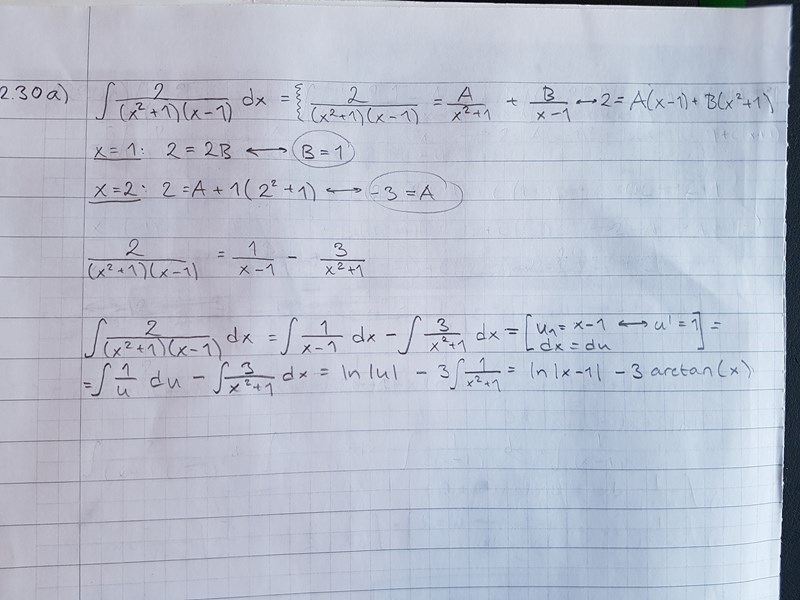 2.30a) ∫ 2/((x²+1)(x-1)) dx = { 2/((x²+1)(x-1)) = A/(x²+1) + B/(x-1) ↔ 2 = A(x-1) + B(x²+1)
x=1: 2 = 2B ↔ B=1
x=2: 2 = A + 1(2²+1) ↔ -3 = A
2/((x²+1)(x-1)) = 1/(x-1) - 3/(x²+1)
∫ 2/((x²+1)(x-1)) dx = ∫ 1/(x-1) dx - ∫ 3/(x²+1) dx = [u₁ = x-1 ↔ u' = 1 dx = du] =
= ∫ 1/u du - ∫ 3/(x²+1) dx = ln|u| - 3∫ 1/(x²+1) = ln|x-1| - 3 arctan(x)